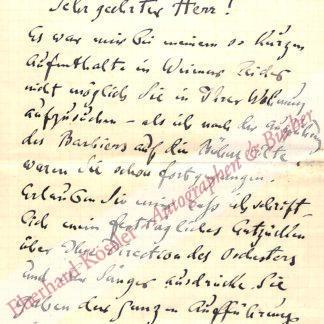 Sehr geehrter Herr!
Es war mir bei meinem so kurzen
Aufenthalte in Weimar leider
nicht möglich Sie in Ihrer Wohnung
aufzusuchen – als ich nach der Aufführung
des Barbiers auf die Bühne eilte
waren Sie schon fortgegangen.
Erlauben Sie mir dass ich schrift-
lich mein Entzücken
über Ihre Direction des Orchesters
und der Sänger ausdrücke. Sie
haben der ganzen Aufführung
Eberhard Köstler Autographen & Bücher